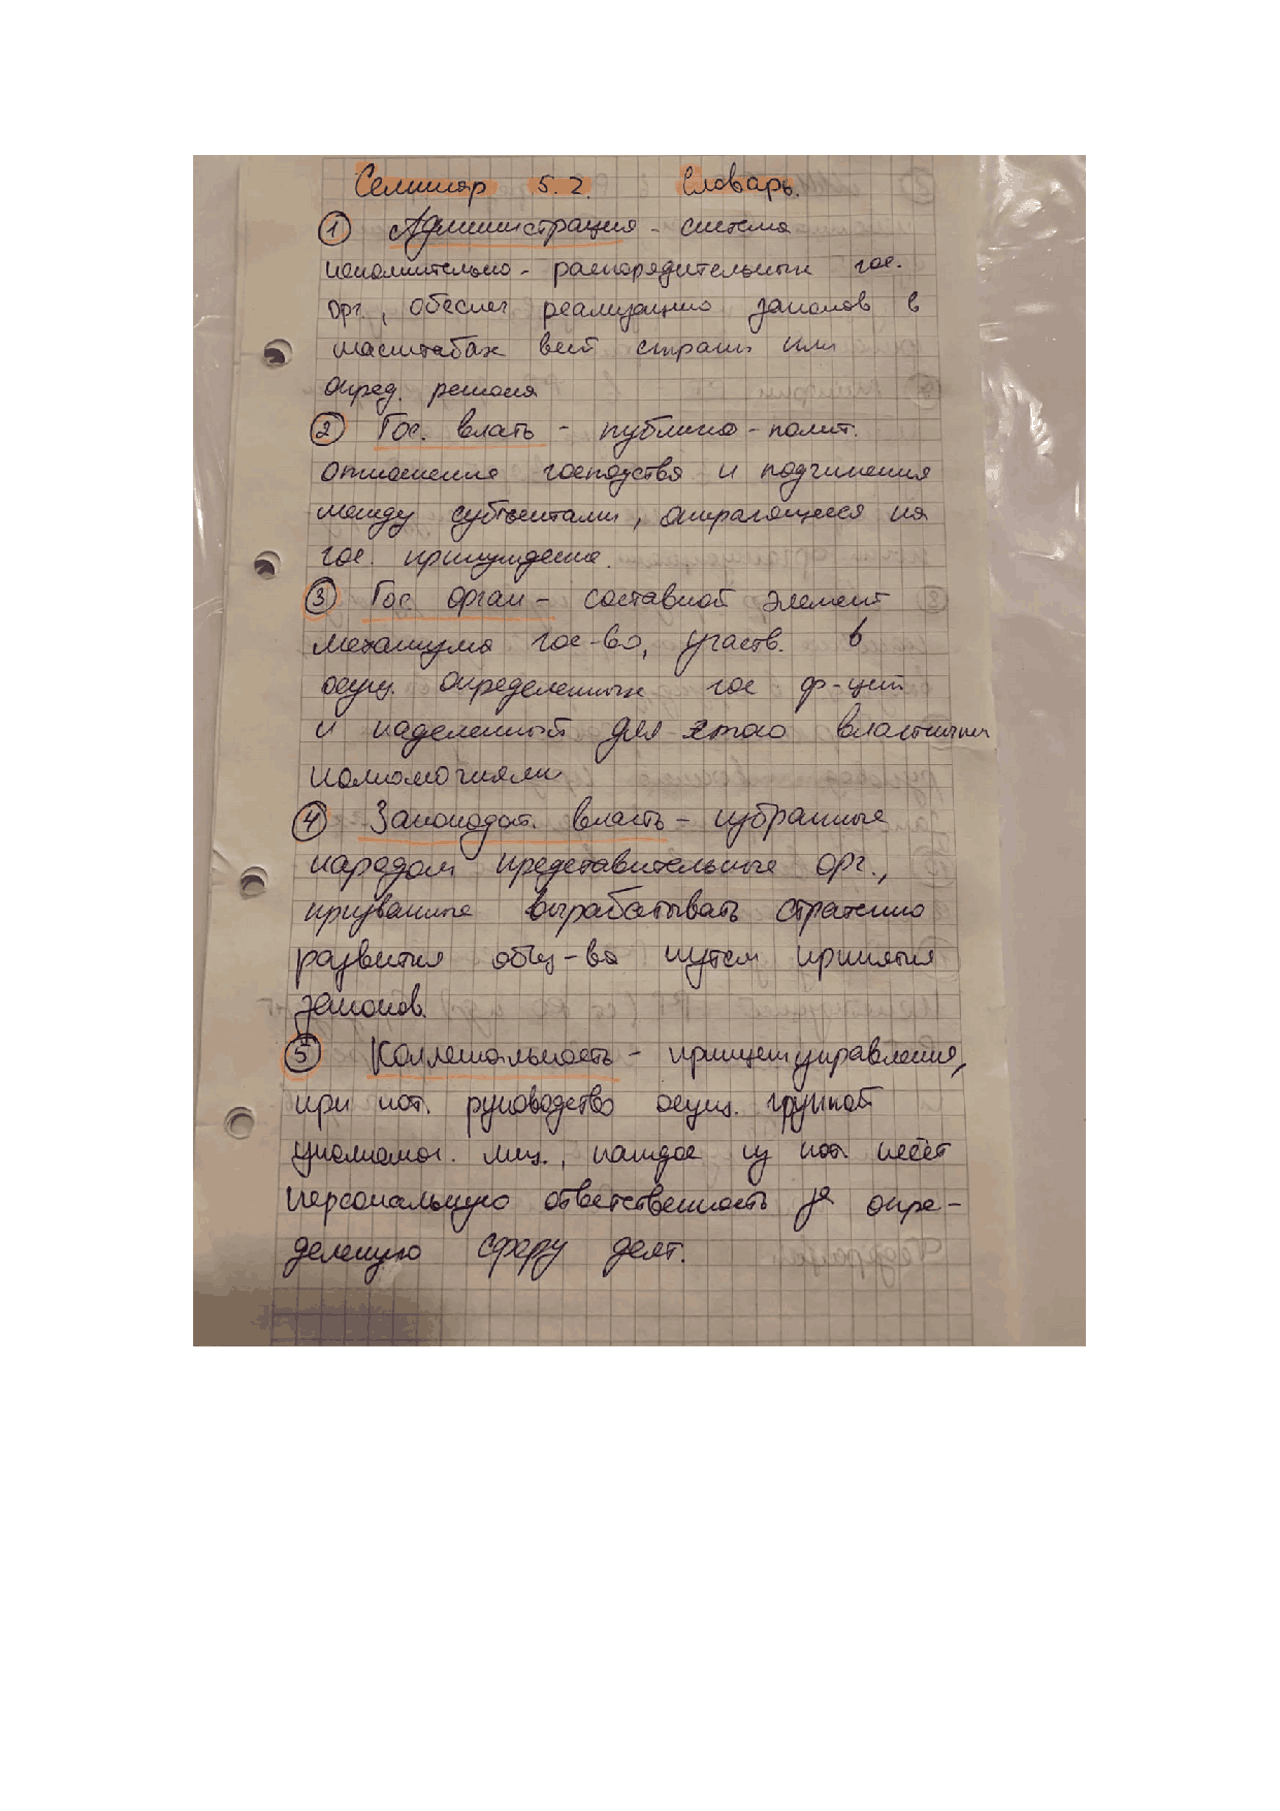 Семинар 5.2. Словарь.
① Администрация - система
исполнительно - распорядительных гос.
орг., обеспеч реализацию законов в
масштабах всей страны или
опред. региона
② Гос. власть - публично - полит.
отношения господства и подчинения
между субъектами, опирающееся на
гос. принуждение.
③ Гос орган - составной элемент
механизма гос-во, участв. в
осущ. определенных гос ф-ций
и наделенный для этого властными
полномочиями
④ Законодат. власть - избранные
народом представительные орг.,
призванные вырабатывать стратегию
развития общ-ва путем принятия
законов.
⑤ Коллегиальность - принцип управления,
при кот. руководство осущ. группой
уполномоч. лиц., каждое из кот. несёт
персональную ответственность за опре-
деленную сферу деят.